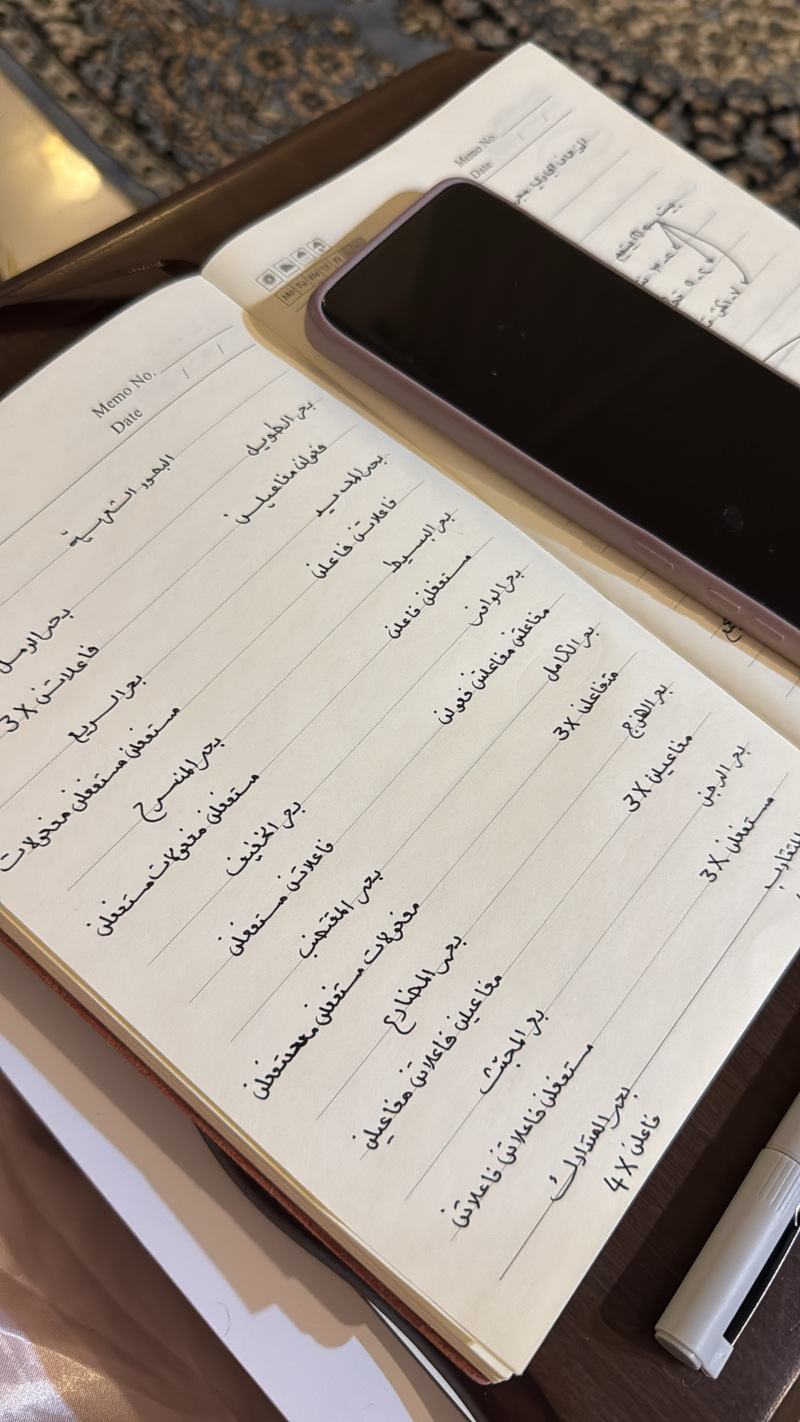 Memo No.
Date / /
البحور الشعرية
بحر الطويل
فعولن مفاعيلن
بحر المديد
فاعلاتن فاعلن
بحر البسيط
مستفعلن فاعلن
بحر الوافر
مفاعلتن مفاعلتن فعولن
بحر الكامل
متفاعلن 3X
بحر الهزج
مفاعيلن 3X
بحر الرجز
مستفعلن 3X
المتقارب
بحر الرمل
فاعلاتن 3X
بحر السريع
مستفعلن مستفعلن مفعولات
بحر المنسرح
مستفعلن مفعولات مستفعلن
بحر الخفيف
فاعلاتن مستفعلن
بحر المقتضب
مفعولات مستفعلن مستفعلن
بحر المضارع
مفاعيلن فاعلاتن مفاعيلن
بحر المجتث
مستفعلن فاعلاتن فاعلاتن
بحر المتدارك
فاعلن 4X
Memo No.
Date / /
Mo Tu We Th Fr